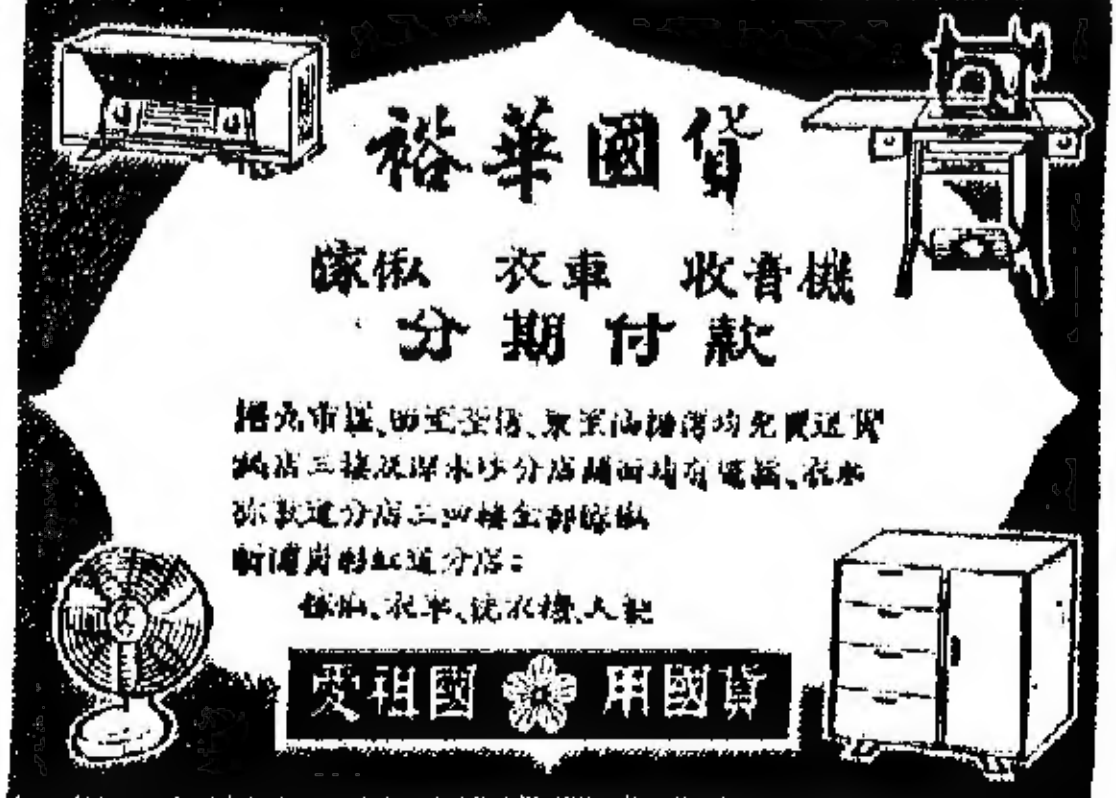 裕華國貨
傢俬 衣車 收音機
分期付款
市區、西至荃灣、東至油塘灣均免費送貨
店三樓及深水埗分店舖面均有電器、衣車
弥敦道分店三四樓全部傢俬
新蒲崗彩虹道分店：
傢俬、衣車、洗衣機
愛祖國 用國貨